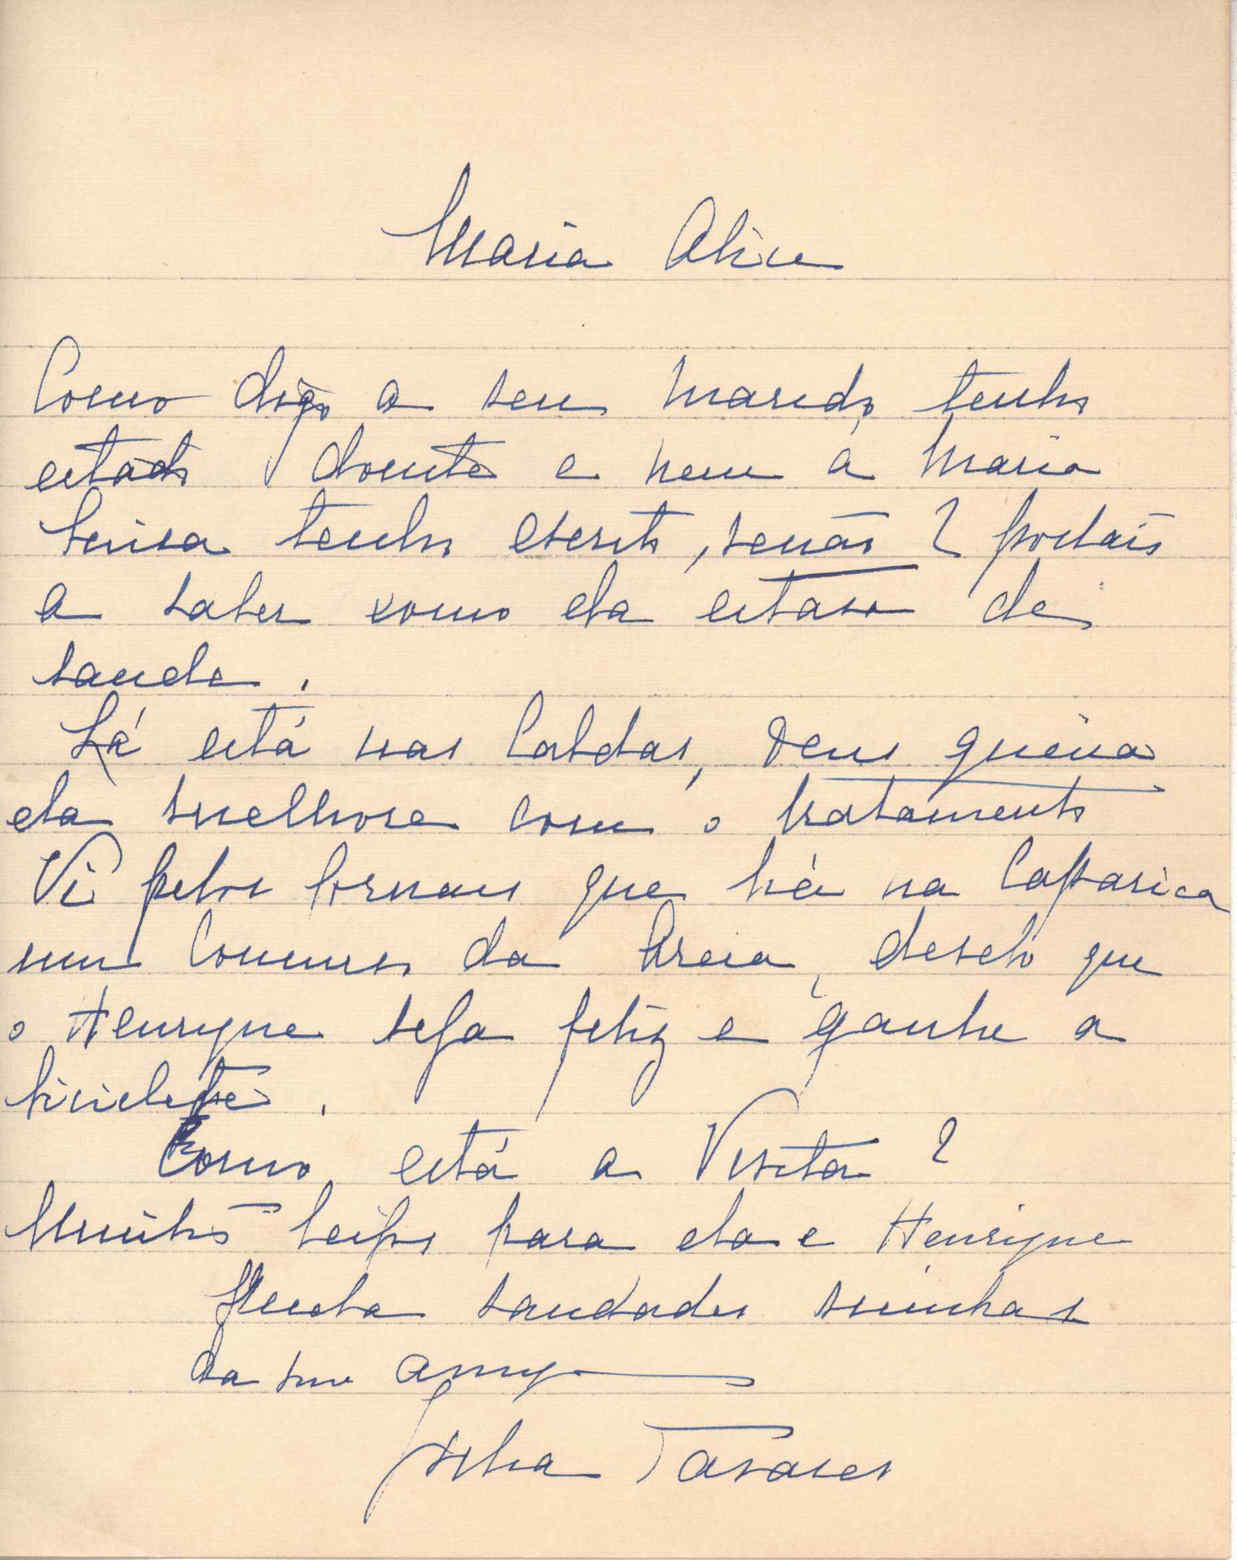 Maria Alice
Como digo a seu marido, tenho
estado doente e nem a Maria
Luisa tenho escrito, senão 2 postais
a saber como ela estava de
saude.
Lá está nas Caldas, Deus queira
ela melhore com o tratamento
Vi pelos Jornais que há na Caparica
um Concurso da Areia, desejo que
o Henrique seja feliz e ganhe a
bicicleta.
Como está a Visita?
Muitos beijos para ela e Henrique
Muita saudades minhas
da sua amiga
Julia Tavares